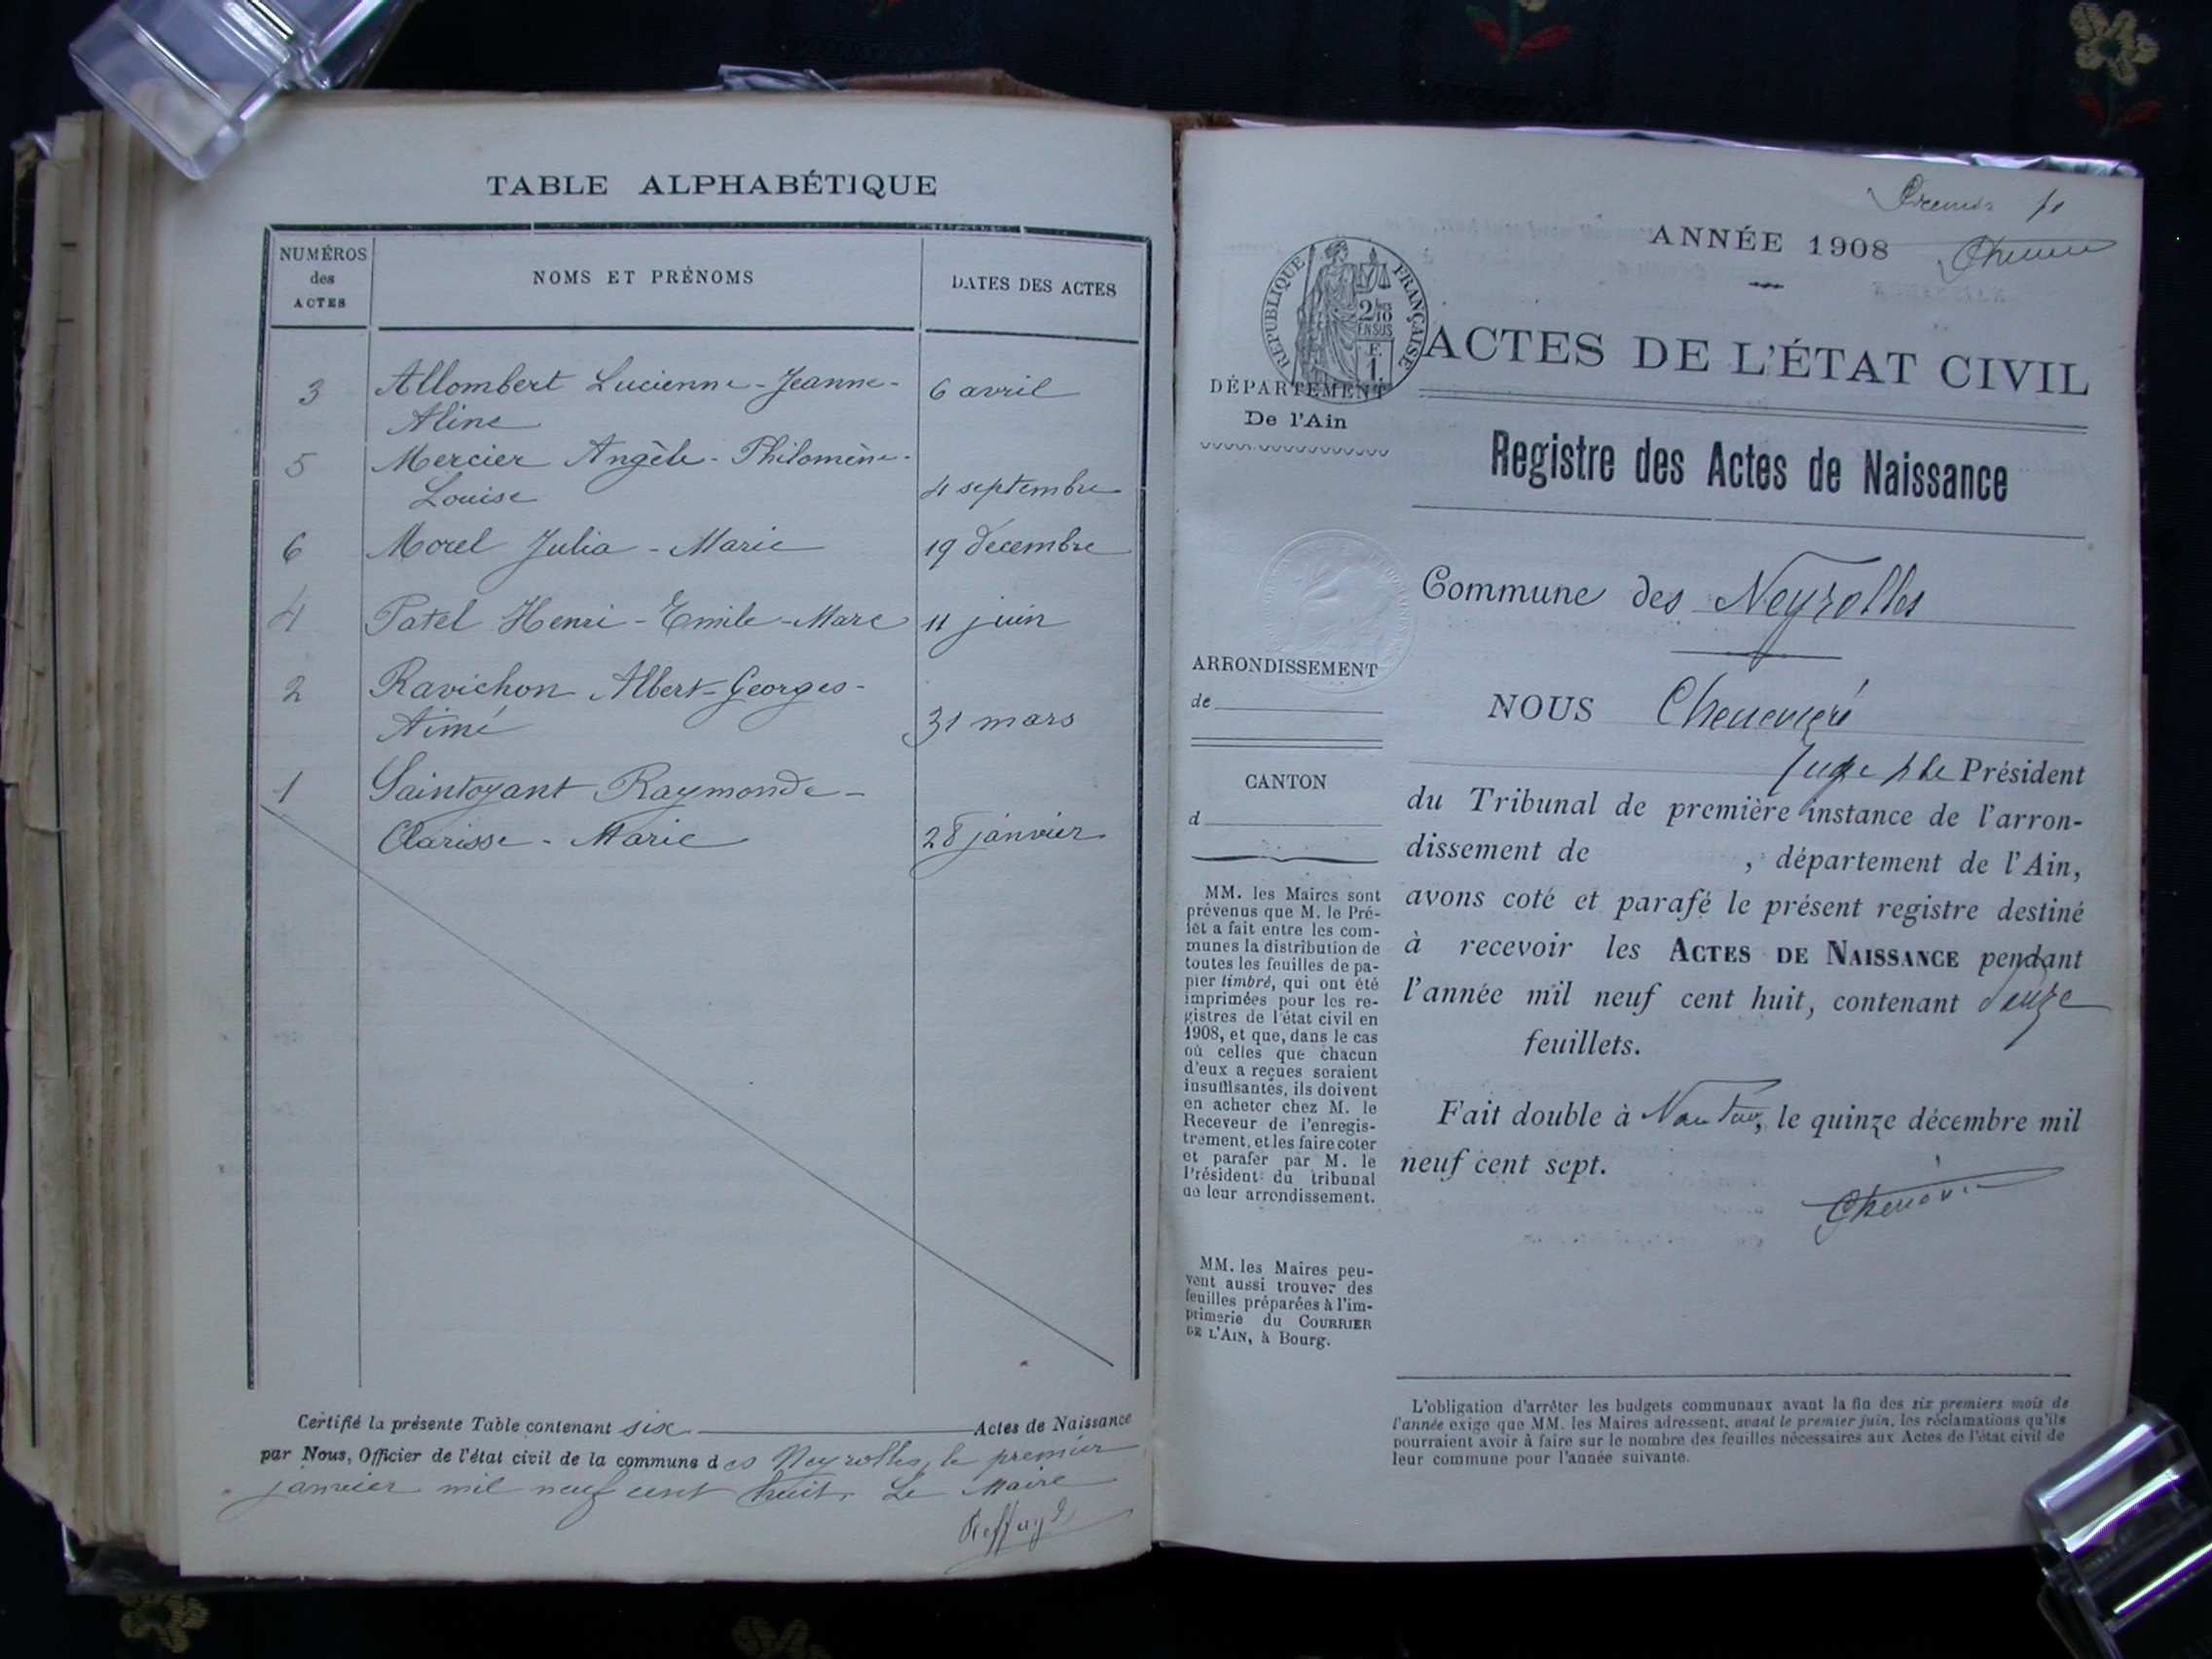 TABLE ALPHABÉTIQUE
NUMÉROS
des
ACTES
NOMS ET PRÉNOMS
DATES DES ACTES
3 Allombert Lucienne-Jeanne- 6 avril
Aline
5 Mercier Angèle-Philomène-
Louise 4 septembre
6 Morel Julia-Marie 19 décembre
4 Patel Henri-Emile-Marc 11 juin
2 Ravichon Albert-Georges-
Aimé 31 mars
1 Saintoyant Raymonde-
Clarisse-Marie 28 janvier
Certifié la présente Table contenant six Actes de Naissance
par Nous, Officier de l'état civil de la commune des Neyrolles, le premier
janvier mil neuf cent huit. Le Maire
ANNÉE 1908
RÉPUBLIQUE FRANÇAISE
2/10
EN SUS
F.
1.
ACTES DE L'ÉTAT CIVIL
DÉPARTEMENT
De l'Ain
Registre des Actes de Naissance
Commune des Neyrolles
ARRONDISSEMENT
de
CANTON
d
NOUS
Juge Président
du Tribunal de première instance de l'arron-
dissement de , département de l'Ain,
avons coté et parafé le présent registre destiné
à recevoir les ACTES DE NAISSANCE pendant
l'année mil neuf cent huit, contenant
feuillets.
Fait double à Nantua, le quinze décembre mil
neuf cent sept.
MM. les Maires sont
prévenus que M. le Pré-
fet a fait entre les com-
munes la distribution de
toutes les feuilles de pa-
pier timbré, qui ont été
imprimées pour les re-
gistres de l'état civil en
1908, et que, dans le cas
où celles que chacun
d'eux a reçues seraient
insuffisantes, ils doivent
en acheter chez M. le
Receveur de l'enregis-
trement, et les faire coter
et parafer par M. le
Président du tribunal
de leur arrondissement.
MM. les Maires peu-
vent aussi trouver des
feuilles préparées à l'im-
primerie du COURRIER
DE L'AIN, à Bourg.
L'obligation d'arrêter les budgets communaux avant la fin des six premiers mois de
l'année exige que MM. les Maires adressent, avant le premier juin, les réclamations qu'ils
pourraient avoir à faire sur le nombre des feuilles nécessaires aux Actes de l'état civil de
leur commune pour l'année suivante.